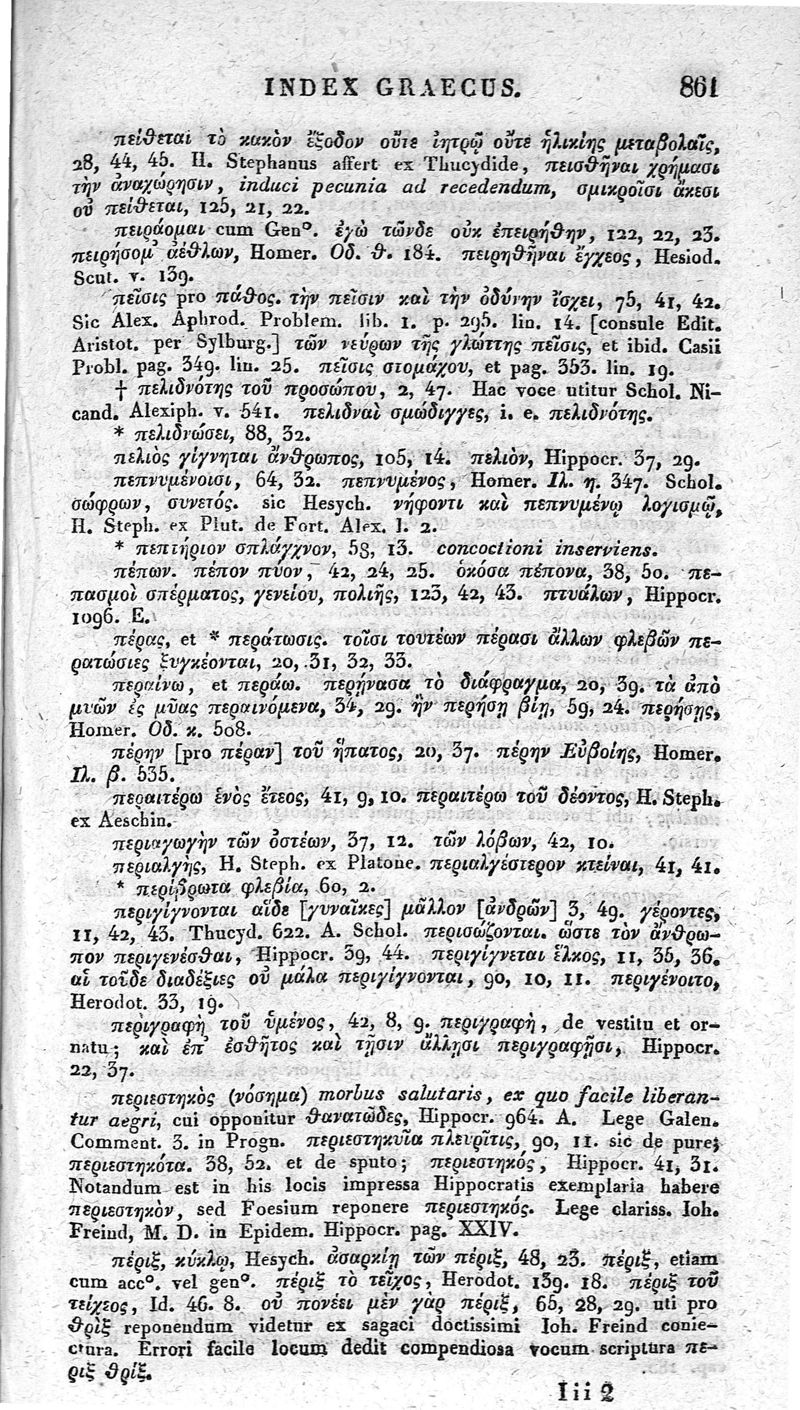 INDEX GRAECUS. 861
πείθεται τὸ κακὸν ἔξοδον οὔτε ἰητρῷ οὔτε ἡλικίης μεταβολαῖς,
28, 44, 45. H. Stephanus affert ex Thucydide, πεισθῆναι χρήμασι
τὴν ἀναχώρησιν, induci pecunia ad recedendum, σμικροῖσι ἄκεσι
οὐ πείθεται, 125, 21, 22.
πειράομαι cum Genº. ἐγὼ τῶνδε οὐκ ἐπειρήθην, 122, 22, 23.
πειρήσομ᾽ ἀέθλων, Homer. Οδ. θ. 184. πειρηθῆναι ἔγχεος, Hesiod.
Scut. v. 139.
πεῖσις pro πάθος. τὴν πεῖσιν καὶ τὴν ὀδύνην ἴσχει, 75, 41, 42.
Sic Alex. Aphrod. Problem. lib. 1. p. 295. lin. 14. [consule Edit.
Aristot. per Sylburg.] τῶν νεύρων τῆς γλώττης πεῖσις, et ibid. Casii
Probl. pag. 349. lin. 25. πεῖσις στομάχου, et pag. 353. lin. 19.
† πελιδνότης τοῦ προσώπου, 2, 47. Hac voce utitur Schol. Ni-
cand. Alexiph. v. 541. πελιδναὶ σμώδιγγες, i. e. πελιδνότης.
* πελιδνώσει, 88, 32.
πελιὸς γίγνηται ἄνθρωπος, 105, 14. πελιὸν, Hippocr. 37, 29.
πεπνυμένοισι, 64, 32. πεπνυμένος, Homer. Ιλ. η. 347. Schol.
σώφρων, συνετός. sic Hesych. νήφοντι καὶ πεπνυμένῳ λογισμῷ,
H. Steph. ex Plut. de Fort. Alex. l. 2.
* πεπτήριον σπλάγχνον, 58, 13. concoctioni inserviens.
πέπων. πέπον πύον, 42, 24, 25. ὁκόσα πέπονα, 38, 50. πε-
πασμοὶ σπέρματος, γενείου, πολιῆς, 123, 42, 43. πτυάλων, Hippocr.
1096. E.
πέρας, et * περάτωσις. τοῖσι τουτέων πέρασι ἄλλων φλεβῶν πε-
ρατώσιες ξυγκέονται, 20, 31, 32, 33.
περαίνω, et περάω. περήνασα τὸ διάφραγμα, 20, 39. τὰ ἀπὸ
μυῶν ἐς μῦας περαινόμενα, 34, 29. ἢν περήσῃ βίῃ, 59, 24. περήσῃς,
Homer. Οδ. κ. 508.
πέρην [pro πέραν] τοῦ ἥπατος, 20, 37. πέρην Εὐβοίης, Homer.
Ιλ. β. 535.
περαιτέρω ἑνὸς ἔτεος, 41, 9, 10. περαιτέρω τοῦ δέοντος, H. Steph.
ex Aeschin.
περιαγωγὴν τῶν ὀστέων, 37, 12. τῶν λόβων, 42, 10.
περιαλγὴς, H. Steph. ex Platone. περιαλγέστερον κτείναι, 41, 41.
* περίβρωτα φλεβία, 60, 2.
περιγίγνονται αἵδε [γυναῖκες] μᾶλλον [ἀνδρῶν] 3, 49. γέροντες,
11, 42, 43. Thucyd. 622. A. Schol. περισώζονται. ὥστε τὸν ἄνθρω-
πον περιγενέσθαι, Hippocr. 39, 44. περιγίγνεται ἕλκος, 11, 35, 36.
αἱ τοῦδε διαδέξιες οὐ μάλα περιγίγνονται, 90, 10, 11. περιγένοιτο,
Herodot. 33, 19.
περιγραφὴ τοῦ ὑμένος, 42, 8, 9. περιγραφὴ, de vestitu et or-
natu; καὶ ἐπ᾽ ἐσθῆτος καὶ τῇσιν ἄλλῃσι περιγραφῇσι, Hippocr.
22, 37.
περιεστηκὸς (νόσημα) morbus salutaris, ex quo facile liberan-
tur aegri, cui opponitur θανατῶδες, Hippocr. 964. A. Lege Galen.
Comment. 3. in Progn. περιεστηκυῖα πλευρῖτις, 90, 11. sic de pure;
περιεστηκότα. 38, 52. et de sputo; περιεστηκός, Hippocr. 41, 31.
Notandum est in his locis impressa Hippocratis exemplaria habere
περιεστηκὸν, sed Foesium reponere περιεστηκός. Lege clariss. Ioh.
Freind, M. D. in Epidem. Hippocr. pag. XXIV.
πέριξ, κύκλῳ, Hesych. ἀσαρκίη τῶν πέριξ, 48, 23. πέριξ, etiam
cum accº. vel genº. πέριξ τὸ τεῖχος, Herodot. 139. 18. πέριξ τοῦ
τείχεος, Id. 46. 8. οὐ πονέει μὲν γὰρ πέριξ, 65, 28, 29. uti pro
θρὶξ reponendum videtur ex sagaci doctissimi Ioh. Freind conie-
ctura. Errori facile locum dedit compendiosa vocum scriptura πε-
ριξ θρίξ.
Iii 2